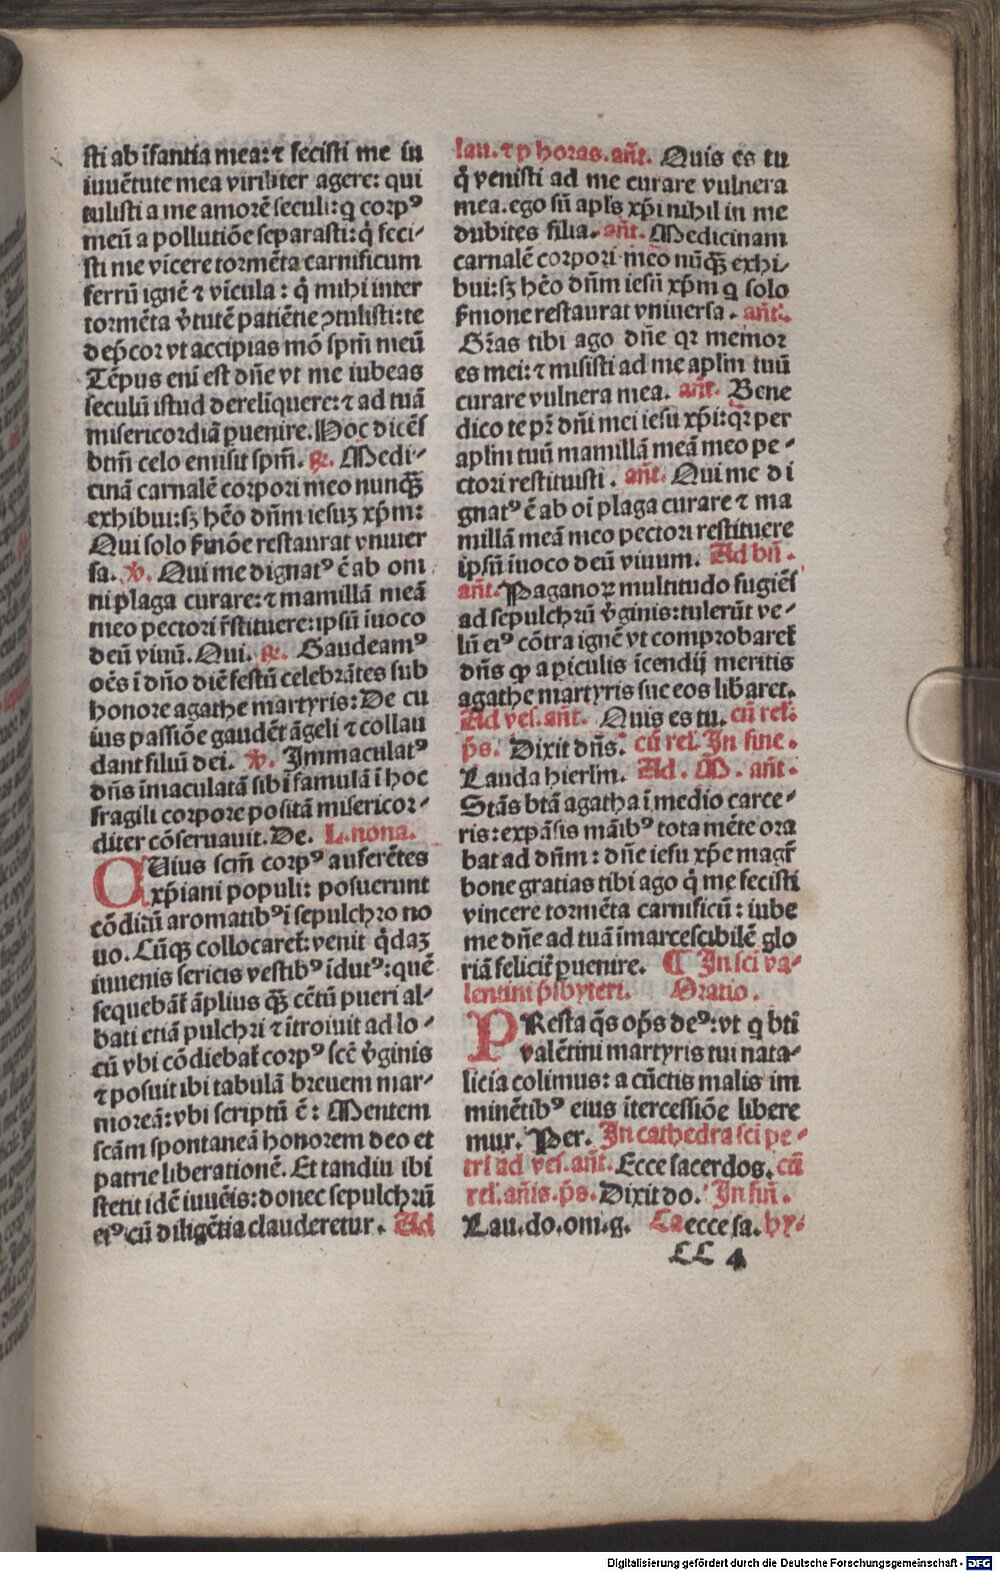 sti ab īfantia mea: ⁊ fecisti me in
iuuētute mea viriliter agere: qui
tulisti a me amorē seculi: q corpꝰ
meū a pollutiōe separasti: q̇ feci⸗
sti me vīcere tormēta carnificum
ferrū ignē ⁊ vīcula: q̇ mihi inter
tormēta v̓tutē patiētie ꝯtulisti: te
dep̄cor vt accipias mō spm̄ meū
Tēpus eni est dn̄e vt me iubeas
seculū istud derelīquere: ⁊ ad tuā
misericordiā ꝑuenire. Hoc dicēs
btm̄ celo emisit spm̄. ℟. Medi⸗
cinā carnalē corpori meo nunqꝫ
exhibui: sꝫ hēo dn̄m iesuꝫ xp̄m:
Qui solo s̓mōe restaurat vniuer
sa. ℣. Qui me dignatꝰ ē ab om
ni plaga curare: ⁊ mamillā meā
meo pectori r̄stituere: ipsū iuoco
deū viuū. Qui. ℟. Gaudeamꝰ
oēs ī dn̄o diē festū celebrātes sub
honore agathe martyris: De cu
ius passiōe gaudēt āgeli ⁊ collau
dant filiū dei. ℣. Immaculatꝰ
dn̄s īmaculatā sibi famulā ī hoc
fragili corpore positā misericor⸗
diter cōseruauit. De. L. nona.
CUius scm̄ corpꝰ auferētes
xp̄iani populi: posuerunt
cōditū aromatibꝰ ī sepulchro no
uo. Cūqꝫ collocaret᷑: venit q̇daꝫ
iuuenis sericis vestibꝰ īdutꝰ: quē
sequebāt᷑ āplius qꝫ cētū pueri al⸗
bati etiā pulchri ⁊ ītroiuit ad lo⸗
cū vbi cōdiebat᷑ corpꝰ scē v̓ginis
⁊ posuit ibi tabulā breuem mar⸗
moreā: vbi scriptū ē: Mentem
scām spontaneā honorem deo et
patrie liberationē. Et tandiu ibi
stetit idē iuuēis: donec sepulchrū
eiꝰ cū diligētia clauderetur. Ad
lau. ⁊ ꝑ horas. an̄t. Quis es tu
q̇ venisti ad me curare vulnera
mea. ego sū apl̄s xp̄i nihil in me
dubites filia. an̄t. Medicinam
carnalē corpori meo nūqꝫ exhi⸗
bui: sꝫ hēo dn̄m iesū xp̄m q solo
s̓mone restaurat vniuersa. an̄t.
Gr̄as tibi ago dn̄e qꝛ memor
es mei: ⁊ misisti ad me aplm̄ tuū
curare vulnera mea. an̄t. Bene
dico te pr̄ dn̄i mei iesu xp̄i: qꝛ per
aplm̄ tuū mamillā meā meo pe⸗
ctori restituisti. an̄t. Qui me di
gnatꝰ ē ab oi plaga curare ⁊ ma
millā meā meo pectori restituere
ipsū iuoco deū viuum. Ad bn̄.
an̄t. Paganoꝝ multitudo fugiēs
ad sepulchrū v̓ginis: tulerūt ve⸗
lū eiꝰ cōtra ignē vt comprobaret᷑
dn̄s ꝙ a ꝑiculis īcendij meritis
agathe martyris sue eos libaret.
Ad ves. an̄t. Quis es tu. cū rel̄.
p̄s. Dixit dn̄s. cū rel̄. In fine.
Lauda hierlm̄. Ad. M. an̄t.
Stās btā agatha ī medio carce⸗
ris: expāsis māibꝰ tota mēte ora
bat ad dn̄m: dn̄e iesu xp̄e magr̄
bone gratias tibi ago q̇ me fecisti
vincere tormēta carnificū: iube
me dn̄e ad tuā īmarcescibilē glo
riā felicit᷑ ꝑuenire. ¶ In sci va⸗
lentini p̄sbyteri. Oratio.
PResta q̄s op̄s deꝰ: vt q bt̄i
valētini martyris tui nata⸗
licia colimus: a cūctis malis im
minētibꝰ eius ītercessiōe libere
mur. Per. In cathedra sci pe⸗
tri ad ves. an̄t. Ecce sacerdos. cū
rel̄. an̄is. p̄s. Dixit do. In fin̄.
Lau. do. om. g. Ca ecce sa. hy.
LL 4
Digitalisierung gefördert durch die Deutsche Forschungsgemeinschaft - DFG